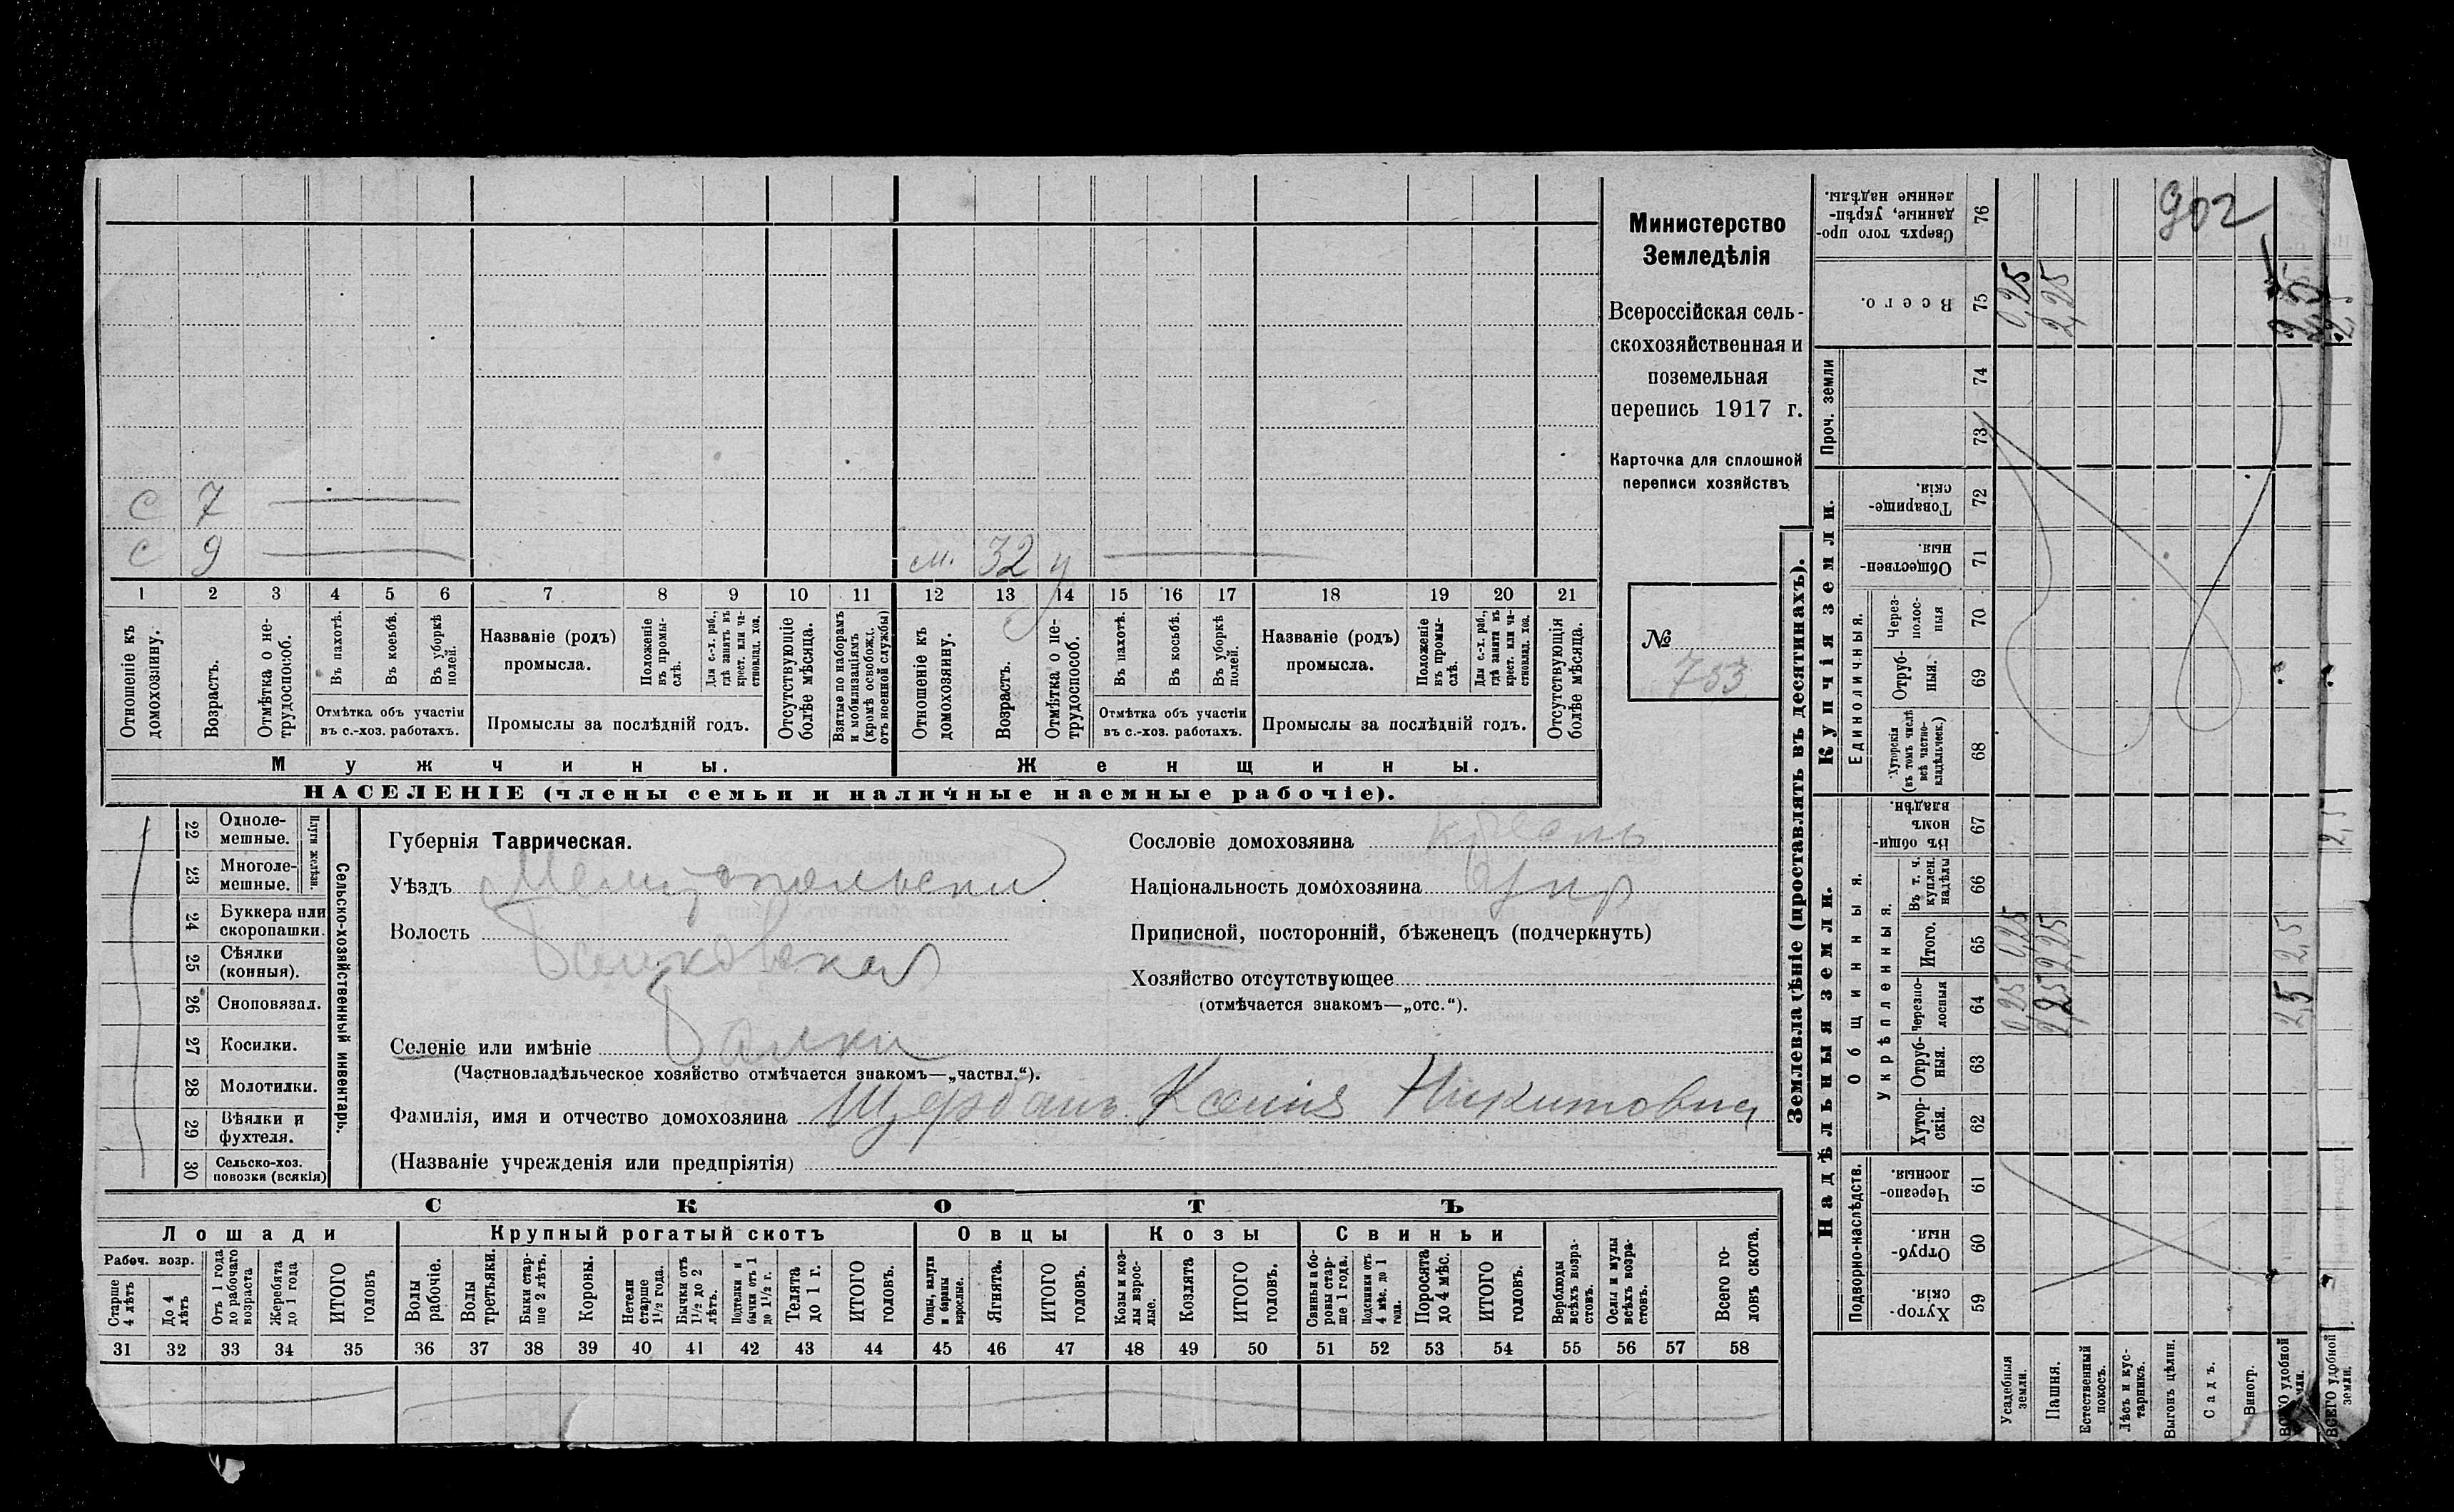 Министерство
Земледѣлія
Всероссійская сель-
скохозяйственная и
поземельная
перепись 1917 г.
Карточка для сплошной
переписи хозяйствъ
№
753
902
С 7
С 9
м. 32
1 2 3 4 5 6 7 8 9 10 11 12 13 14 15 16 17 18 19 20 21
Отношеніе къ домохозяину.
Возрастъ.
Отмѣтка о не-трудоспособ.
Въ пахотѣ.
Въ косьбѣ.
Въ уборкѣ полей.
Отмѣтка объ участіи
въ с.-хоз. работахъ.
Названіе (родъ)
промысла.
Положеніе въ промы-слѣ.
Для с.-х. раб., гдѣ занятъ въ крест. или ча-стновлад. хоз.
Промыслы за послѣдній годъ.
Отсутствующіе болѣе мѣсяца.
Взятые по наборамъ и мобилизаціямъ (кромѣ освобожд. отъ военной службы)
Отношеніе къ домохозяину.
Возрастъ.
Отмѣтка о не-трудоспособ.
Въ пахотѣ.
Въ косьбѣ.
Въ уборкѣ полей.
Отмѣтка объ участіи
въ с.-хоз. работахъ.
Названіе (родъ)
промысла.
Положеніе въ промы-слѣ.
Для с.-х. раб., гдѣ занята въ крест. или ча-стновлад. хоз.
Промыслы за послѣдній годъ.
Отсутствующія болѣе мѣсяца.
Мужчины.
Женщины.
НАСЕЛЕНІЕ (члены семьи и наличные наемные рабочіе).
22 Одноле-мешные.
23 Многоле-мешные.
Плуги желѣзн.
24 Буккера или скоропашки.
25 Сѣялки (конныя).
26 Сноповязал.
27 Косилки.
28 Молотилки.
29 Вѣялки и фухтеля.
30 Сельско-хоз. повозки (всякія)
Сельско-хозяйственный инвентарь.
Губернія Таврическая.
Уѣздъ Мелитопольскій
Волость
Селеніе или имѣніе Балки
(Частновладѣльческое хозяйство отмѣчается знакомъ—„частвл.“).
Фамилія, имя и отчество домохозяина Щербань Ксенія Никитовна
(Названіе учрежденія или предпріятія)
Сословіе домохозяина
Національность домохозяина укр
Приписной, посторонній, бѣженецъ (подчеркнуть)
Хозяйство отсутствующее
(отмѣчается знакомъ—„отс.“).
СКОТЪ
Лошади
Крупный рогатый скотъ
Овцы
Козы
Свиньи
Рабоч. возр.
Старше 4 лѣтъ
До 4 лѣтъ
Отъ 1 года до рабочаго возраста
Жеребята до 1 года
ИТОГО головъ
Волы рабочіе.
Волы третьяки.
Быки стар-ше 2 лѣтъ.
Коровы.
Нетели старше 1½ года.
Бычки отъ 1½ до 2 лѣтъ.
Подтелки и бычки отъ 1 до 1½ г.
Телята до 1 г.
ИТОГО головъ.
Овцы, валухи и бараны взрослые.
Ягнята.
ИТОГО головъ.
Козы и коз-лы взрос-лые.
Козлята
ИТОГО головъ.
Свиньи и бо-ровы стар-ше 1 года.
Подсвинки отъ 4 мѣс. до 1 года.
Поросята до 4 мѣс.
ИТОГО головъ.
Верблюды всѣхъ возра-стовъ.
Ослы и мулы всѣхъ возра-стовъ.
Всего го-ловъ скота.
31 32 33 34 35 36 37 38 39 40 41 42 43 44 45 46 47 48 49 50 51 52 53 54 55 56 57 58
Землевладѣніе (проставлять въ десятинахъ).
Надѣльныя земли.
Купчія земли.
Проч. земли
Подворно-наслѣдств.
Общинныя.
Укрѣпленныя.
Единоличныя.
Хутор-скія. 59
Отруб-ныя. 60
Черезпо-лосныя. 61
Хутор-скія. 62
Отруб-ныя. 63
Черезпо-лосныя 64
Итого. 65
Въ т. ч. куплен. надѣлы 66
Въ общин-номъ владѣн. 67
Хуторскія (въ томъ числѣ всѣ частно-владѣльческ.) 68
Отруб-ныя. 69
Через-полос-ныя 70
Обществен-ныя. 71
Товарище-скія. 72
73
74
Всего. 75
Сверхъ того про-данные, укрѣп-ленные надѣлы. 76
Усадебныя земли. 0,25 0,25 0,25
Пашня. 2,25 2,25 2,25
Естественный покосъ.
Лѣсъ и кус-тарникъ.
Выгонъ цѣлин.
Садъ.
Виногр.
2,5 2,5
ВСЕГО удобной земли.